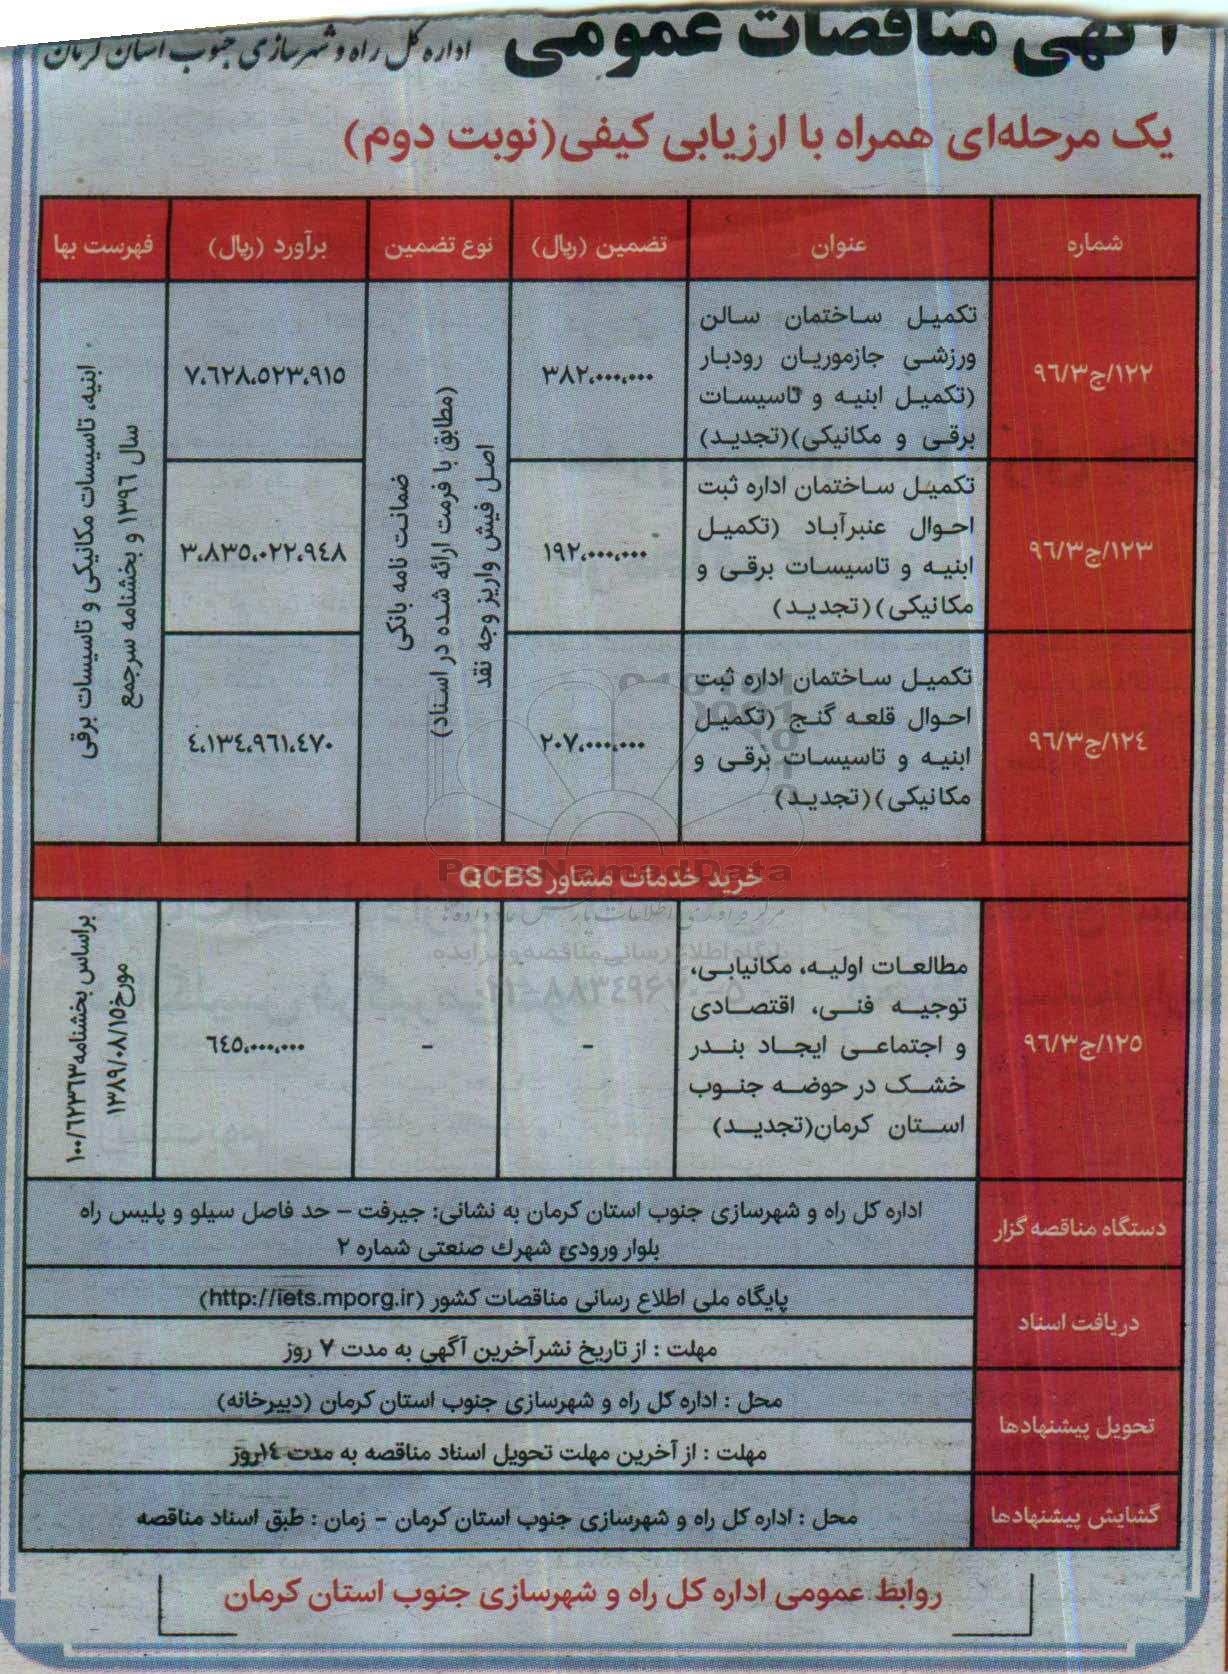 آگهی مناقصات عمومی
اداره کل راه و شهرسازی جنوب استان کرمان
یک مرحله‌ای همراه با ارزیابی کیفی (نوبت دوم)
شماره
عنوان
تضمین (ریال)
نوع تضمین
برآورد (ریال)
فهرست بها
۱۲۲/ج/۹۶/۳
تکمیل ساختمان سالن
ورزشی جازموریان رودبار
(تکمیل ابنیه و تاسیسات
برقی و مکانیکی)(تجدید)
۳۸۲،۰۰۰،۰۰۰
ضمانت نامه بانکی
(مطابق با فرمت ارائه شده در اسناد)
اصل فیش واریز وجه نقد
۷،٦۲۸،۵۲۳،۹۱۵
ابنیه، تاسیسات مکانیکی و تاسیسات برقی
سال ۱۳۹٦ و بخشنامه سرجمع
۱۲۳/ج/۹۶/۳
تکمیل ساختمان اداره ثبت
احوال عنبرآباد (تکمیل
ابنیه و تاسیسات برقی و
مکانیکی)(تجدید)
۱۹۲،۰۰۰،۰۰۰
۳،۸۳۵،۰۲۲،۹٤۸
۱۲٤/ج/۹۶/۳
تکمیل ساختمان اداره ثبت
احوال قلعه گنج (تکمیل
ابنیه و تاسیسات برقی و
مکانیکی)(تجدید)
۲۰۷،۰۰۰،۰۰۰
٤،۱۳٤،۹٦۱،٤۷۰
خرید خدمات مشاور QCBS
ParsNamadData
پایگاه اطلاع رسانی مناقصه و مزایده
۱۲۵/ج/۹۶/۳
مطالعات اولیه، مکانیابی،
توجیه فنی، اقتصادی
و اجتماعی ایجاد بندر
خشک در حوضه جنوب
استان کرمان(تجدید)
-
-
٦٤۵،۰۰۰،۰۰۰
براساس بخشنامه ۱۰۰/٦۲۳٦۳
مورخ ۱۳۸۹/۰۸/۱۵
دستگاه مناقصه گزار
اداره کل راه و شهرسازی جنوب استان کرمان به نشانی: جیرفت – حد فاصل سیلو و پلیس راه
بلوار ورودی شهرک صنعتی شماره ۲
دریافت اسناد
پایگاه ملی اطلاع رسانی مناقصات کشور (http://iets.mporg.ir)
مهلت : از تاریخ نشر آخرین آگهی به مدت ۷ روز
تحویل پیشنهادها
محل : اداره کل راه و شهرسازی جنوب استان کرمان (دبیرخانه)
مهلت : از آخرین مهلت تحویل اسناد مناقصه به مدت ۱٤ روز
گشایش پیشنهادها
محل : اداره کل راه و شهرسازی جنوب استان کرمان – زمان : طبق اسناد مناقصه
روابط عمومی اداره کل راه و شهرسازی جنوب استان کرمان